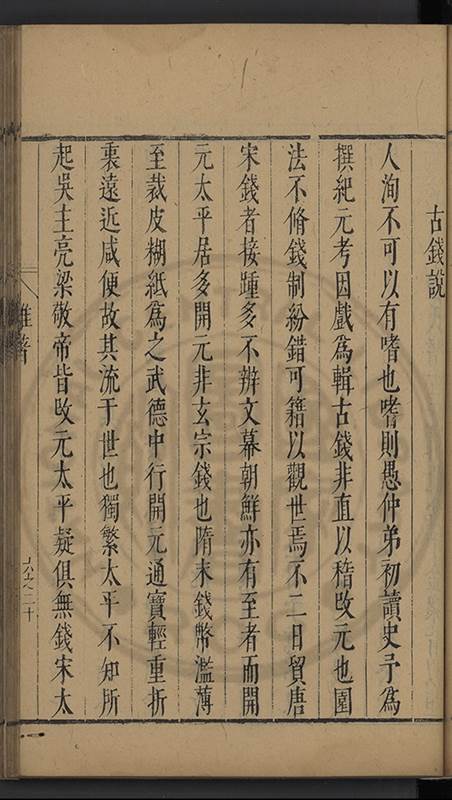 古錢說
人洵不可以有嗜也嗜則愚仲弟初讀史予爲
撰紀元考因戲爲輯古錢非直以稽改元也圜
法不脩錢制紛錯可籍以觀世焉不二日貿唐
宋錢者接踵多不辨文幕朝鮮亦有至者而開
元太平居多開元非玄宗錢也隋末錢幣濫薄
至裁皮糊紙爲之武德中行開元通寶輕重折
衷遠近咸便故其流于世也獨繁太平不知所
起吳主亮梁敬帝皆改元太平疑俱無錢宋太
雜著